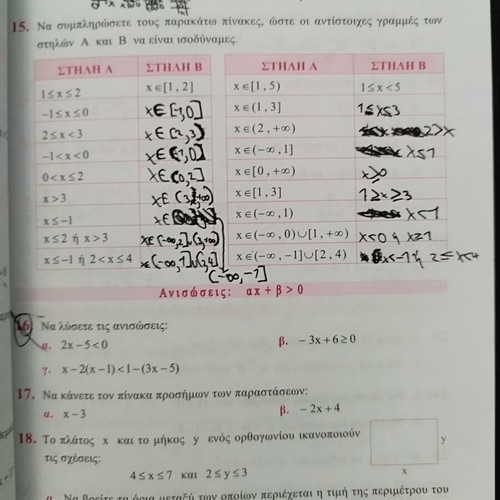 15. Να συμπληρώσετε τους παρακάτω πίνακες, ώστε οι αντίστοιχες γραμμές των
στηλών Α και Β να είναι ισοδύναμες.
ΣΤΗΛΗ Α ΣΤΗΛΗ Β ΣΤΗΛΗ Α ΣΤΗΛΗ Β
1≤x≤2 x∈[1, 2] x∈[1, 5) 1≤x<5
-1≤x≤0 x∈[-1,0] x∈(1, 3] 1≤x≤3
2≤x<3 x∈[2,3) x∈(2, +∞) 2>x
-1<x<0 x∈(-1,0) x∈(-∞, 1] x≤1
0<x≤2 x∈(0,2] x∈[0, +∞) x>0
x>3 x∈(3,+∞) x∈[1, 3] 1≥x≥3
x≤-1 x∈ x∈(-∞, 1) x<1
x≤2 ή x>3 x∈(-∞,2]∪(3,+∞) x∈(-∞, 0)∪[1, +∞) x<0 ή x≥1
x≤-1 ή 2<x≤4 x∈(-∞,1]∪(2,4] x∈(-∞, -1]∪[2, 4) x≤-1 ή 2≤x≤4
(-∞,-1]
Ανισώσεις: αx + β > 0
16. Να λύσετε τις ανισώσεις:
α. 2x-5<0 β. -3x+6≥0
γ. x-2(x-1)<1-(3x-5)
17. Να κάνετε τον πίνακα προσήμων των παραστάσεων:
α. x-3 β. -2x+4
18. Το πλάτος x και το μήκος y ενός ορθογωνίου ικανοποιούν
τις σχέσεις:
y
4≤x≤7 και 2≤y≤3
x
α. Να βρείτε τα όρια μεταξύ των οποίων περιέχεται η τιμή της περιμέτρου του